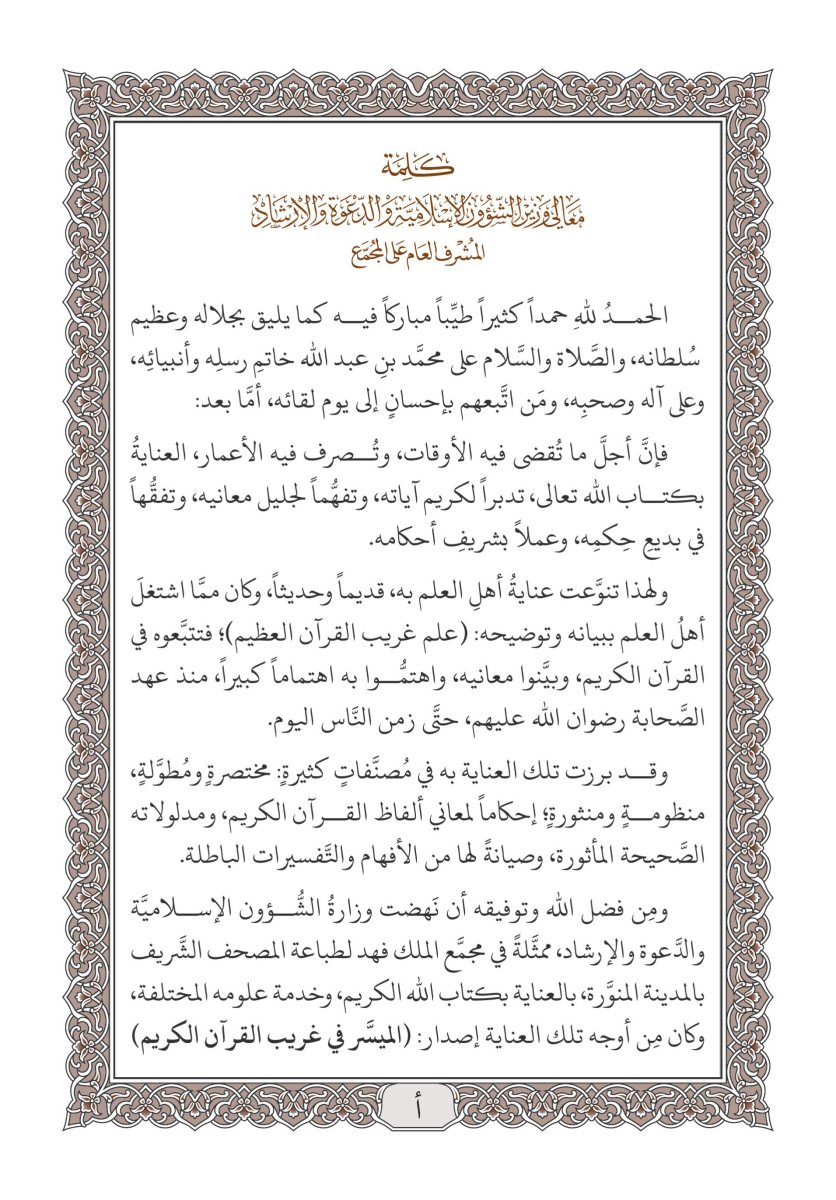 كَلِمَة
مَعَالِي وَزِيْرِ الشُّؤُونِ الإِسْلَامِيَّةِ وَالدَّعْوَةِ وَالإِرْشَادِ
المُشْرف العَام عَلى المُجَمَّع
الحمـــدُ للهِ حمداً كثيراً طيِّباً مباركاً فيـــه كما يليق بجلاله وعظيم
سُلطانه، والصَّلاة والسَّلام على محمَّد بنِ عبد الله خاتمِ رسلِه وأنبيائِه،
وعلى آله وصحبِه، ومَن اتَّبعهم بإحسانٍ إلى يوم لقائه، أمَّا بعد:
فإنَّ أجلَّ ما تُقضى فيه الأوقات، وتُـــصرف فيه الأعمار، العنايةُ
بكتـــاب الله تعالى، تدبراً لكريم آياته، وتفهُّماً لجليل معانيه، وتفقُّهاً
في بديعِ حِكمِه، وعملاً بشريفِ أحكامه.
ولهذا تنوَّعت عنايةُ أهلِ العلم به، قديماً وحديثاً، وكان ممَّا اشتغلَ
أهلُ العلم ببيانه وتوضيحه: (علم غريب القرآن العظيم)؛ فتتبَّعوه في
القرآن الكريم، وبيَّنوا معانيه، واهتمُّـــوا به اهتماماً كبيراً، منذ عهد
الصَّحابة رضوان الله عليهم، حتَّى زمن النَّاس اليوم.
وقـــد برزت تلك العناية به في مُصنَّفاتٍ كثيرةٍ: مختصرةٍ ومُطوَّلةٍ،
منظومـــةٍ ومنثورةٍ؛ إحكاماً لمعاني ألفاظ القـــرآن الكريم، ومدلولاته
الصَّحيحة المأثورة، وصيانةً لها من الأفهام والتَّفسيرات الباطلة.
ومِن فضل الله وتوفيقه أن نَهضت وزارةُ الشُّـــؤون الإســـلاميَّة
والدَّعوة والإرشاد، ممثَّلةً في مجمَّع الملك فهد لطباعة المصحف الشَّريف
بالمدينة المنوَّرة، بالعناية بكتاب الله الكريم، وخدمة علومه المختلفة،
وكان مِن أوجه تلك العناية إصدار: (الميسَّر في غريب القرآن الكريم)
أ